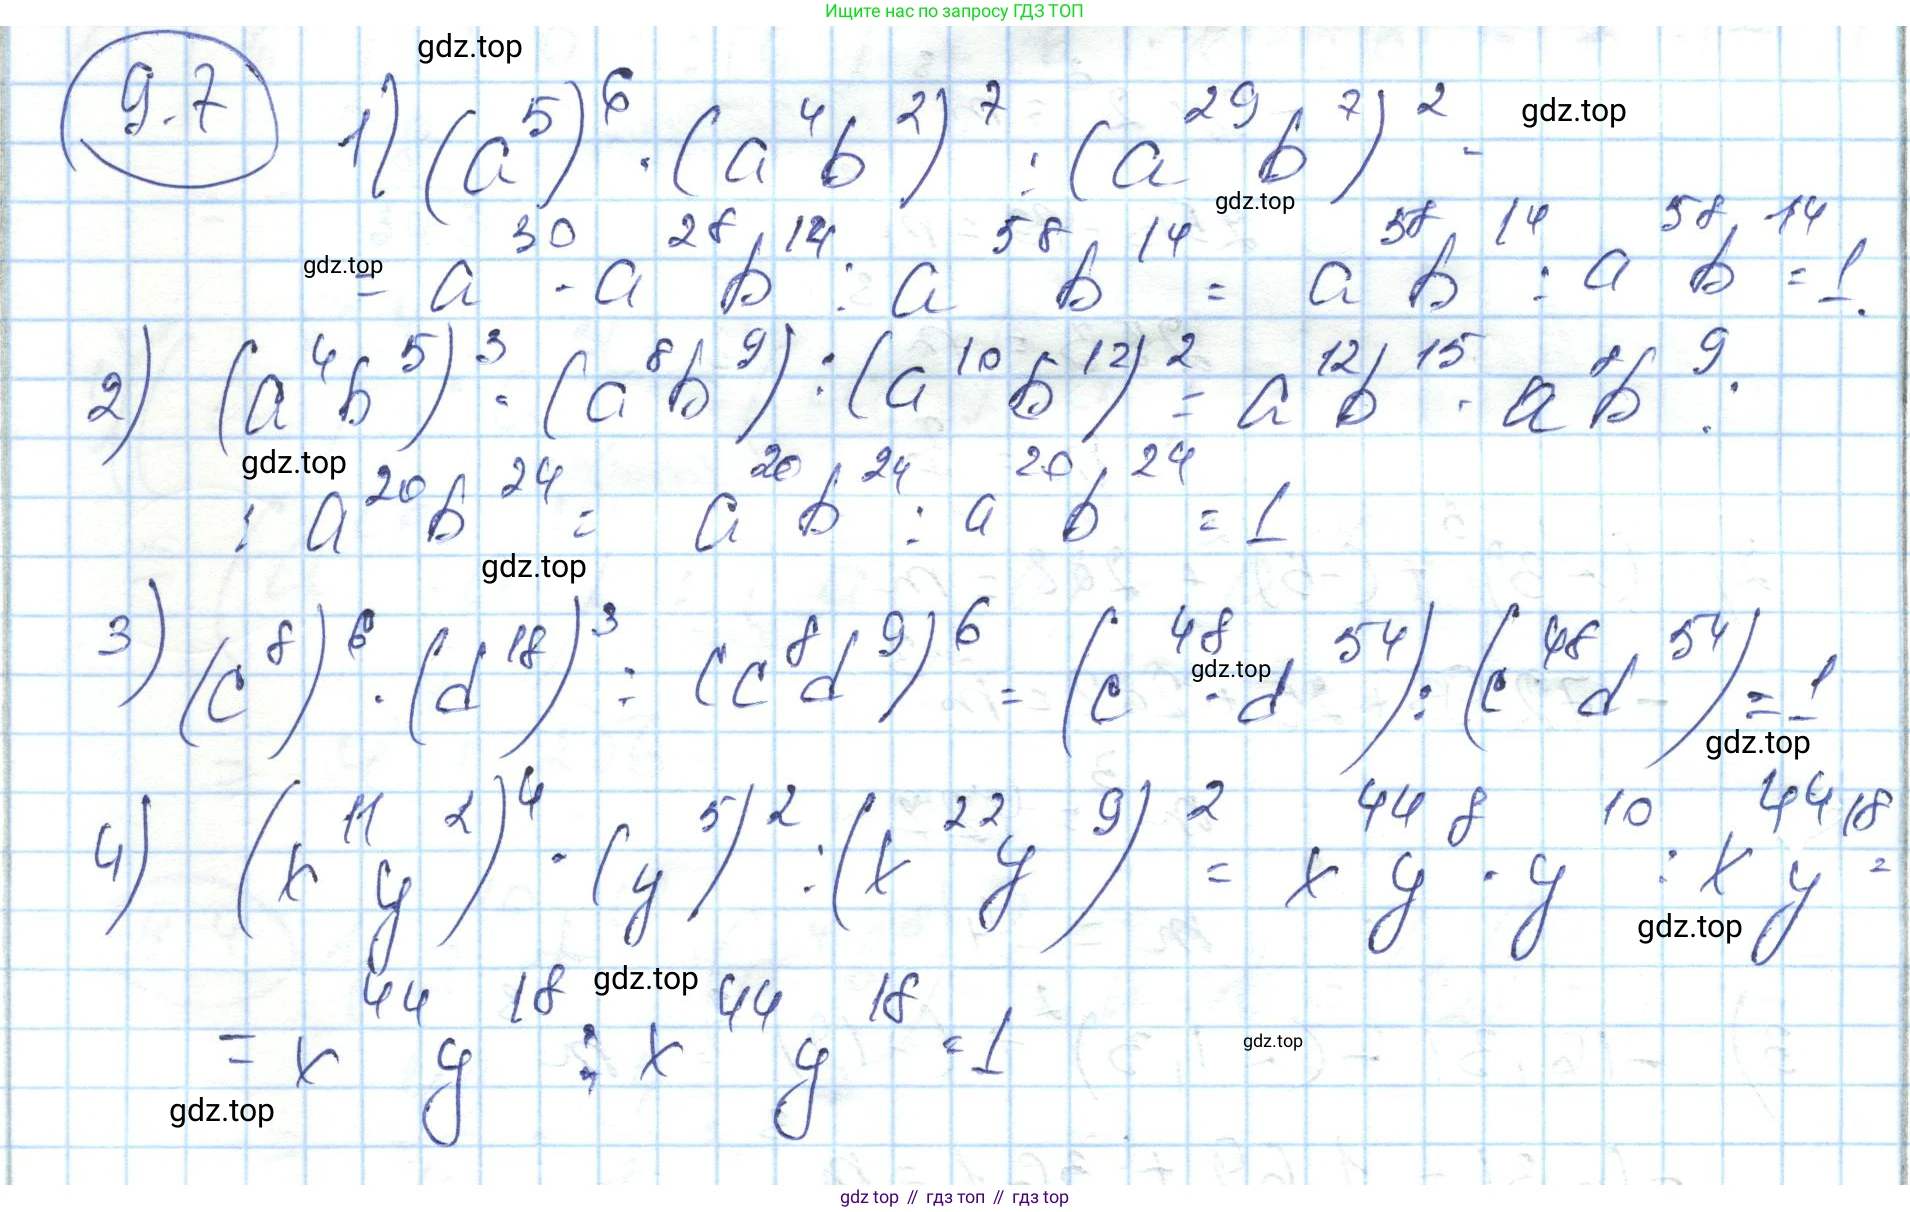 Ищите нас по запросу ГДЗ ТОП
gdz.top
9.7
1) (a⁵)⁶ · (a⁴b²)⁷ : (a²⁹b⁷)² -
gdz.top
gdz.top
gdz.top
= a³⁰ · a²⁸b¹⁴ : a⁵⁸b¹⁴ = a⁵⁸b¹⁴ : a⁵⁸b¹⁴ = 1.
2) (a⁴b⁵)³ · (a⁸b⁹) : (a¹⁰b¹²)² = a¹²b¹⁵ · a⁸b⁹ :
gdz.top
: a²⁰b²⁴ = a²⁰b²⁴ : a²⁰b²⁴ = 1
gdz.top
3) (c⁸)⁶ · (d¹⁸)³ : (c⁸d⁹)⁶ = (c⁴⁸ · d⁵⁴) : (c⁴⁸d⁵⁴) = 1
gdz.top
gdz.top
4) (x¹¹y²)⁴ · (y⁵)² : (x²²y⁹)² = x⁴⁴y⁸ · y¹⁰ : x⁴⁴y¹⁸ =
gdz.top
gdz.top
= x⁴⁴y¹⁸ : x⁴⁴y¹⁸ = 1
gdz.top
gdz.top
gdz top // гдз топ // гдз top